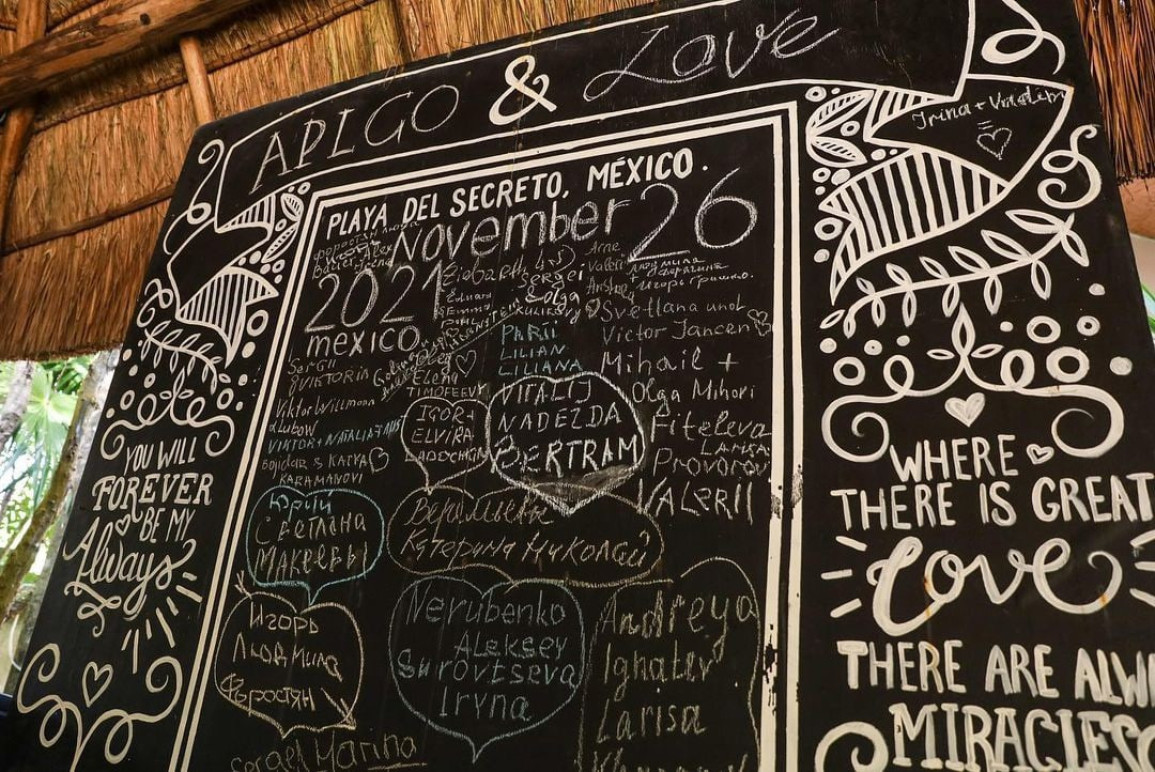 APIGO & Love
Irina + Vadim
PLAYA DEL SECRETO, MÉXICO.
November 26
2021
mexico
Sergei
Arne
Valeri
Людмила
+ Игорь Грашко.
& Olga
Svetlana und
Victor Jancen
PARII
LILIAN
LILIANA
Mihail +
Olga Mihori
Fiteleva
LARISA
Provorov
VALERII
Elena
TIMOFEEV
SERGII
&VIKTORIA
Viktor Willmann
Lubow
VIKTOR + NATALIA
Bojidar & KATYA
KARAMANOVI
IGOR +
ELVIRA
VITALIJ
NADEZDA
BERTRAM
Юрий
Светлана
Макеевы
Катерина Николай
Игорь
Людмила
Форостян
Nerubenko
Aleksey
Surovtseva
Iryna
Andreya
Ignatev
Larisa
Sergei Marina
YOU WILL
FOREVER
BE MY
Always
WHERE
THERE IS GREAT
Love
THERE ARE ALW
MIRACLES